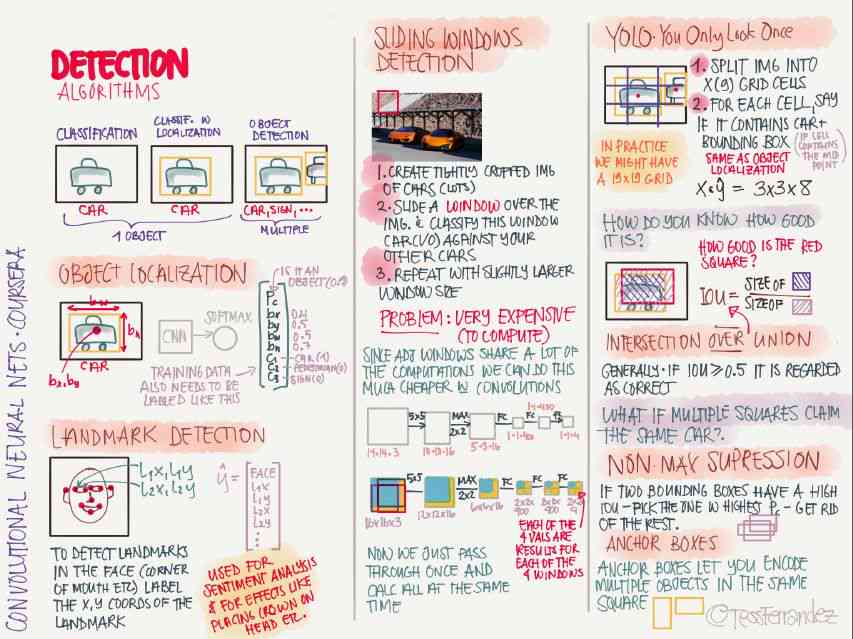 CONVOLUTIONAL NEURAL NETS · COURSERA
DETECTION
ALGORITHMS
CLASSIFICATION
CLASSIF. W
LOCALIZATION
OBJECT
DETECTION
CAR
CAR
CAR, SIGN, ...
1 OBJECT
MULTIPLE
OBJECT LOCALIZATION
bw
bh
CAR
bx, by
CNN
SOFTMAX
TRAINING DATA
ALSO NEEDS TO BE
LABLED LIKE THIS
IS IT AN
OBJECT (0.1)
Pc
bx
by 0.5
bw 0.5
bh 0.7
C1 CAR (1)
C2 PEDESTRIAN (0)
C3 SIGN (0)
LANDMARK DETECTION
L1X, L1Y
L2X, L2Y
ŷ =
FACE
L1X
L1Y
L2X
L2Y
:
TO DETECT LANDMARKS
IN THE FACE (CORNER
OF MOUTH ETC) LABEL
THE X,Y COORDS OF THE
LANDMARK
USED FOR
SENTIMENT ANALYSIS
& FOR EFFECTS LIKE
PLACING CROWN ON
HEAD ETC.
SLIDING WINDOWS
DETECTION
1. CREATE TIGHTLY CROPPED IMG
OF CARS (LOTS)
2. SLIDE A WINDOW OVER THE
IMG. & CLASSIFY THIS WINDOW
CAR (1/0) AGAINST YOUR
OTHER CARS
3. REPEAT WITH SLIGHTLY LARGER
WINDOW SIZE
PROBLEM: VERY EXPENSIVE
(TO COMPUTE)
SINCE ADJ WINDOWS SHARE A LOT OF
THE COMPUTATIONS WE CAN DO THIS
MUCH CHEAPER W CONVOLUTIONS
5x5
MAX
2x2
FC
1·1·400
FC
14·14·3
10·10·16
5·5·16
1·1·400
1·1·4
5x5
MAX
2x2
FC
FC
FC
16x16x3
12x12x16
6x6x16
2x2x
400
2x2x
400
EACH OF THE
4 VALS ARE
RESULTS FOR
EACH OF THE
4 WINDOWS
NOW WE JUST PASS
THROUGH ONCE AND
CALC ALL AT THE SAME
TIME
YOLO · You Only Look Once
1. SPLIT IMG INTO
X(9) GRID CELLS
2. FOR EACH CELL, SAY
IF IT CONTAINS CAR +
BOUNDING BOX
(IF CELL
CONTAINS
THE MID
POINT)
SAME AS OBJECT
LOCALIZATION
IN PRACTICE
WE MIGHT HAVE
A 19x19 GRID
X & ŷ = 3x3x8
HOW DO YOU KNOW HOW GOOD
IT IS?
HOW GOOD IS THE RED
SQUARE?
IOU =
SIZE OF
SIZE OF
INTERSECTION OVER UNION
GENERALLY · IF IOU ≥ 0.5 IT IS REGARDED
AS CORRECT
WHAT IF MULTIPLE SQUARES CLAIM
THE SAME CAR?
NON-MAX SUPRESSION
IF TWO BOUNDING BOXES HAVE A HIGH
IOU - PICK THE ONE W HIGHEST Pc - GET RID
OF THE REST.
ANCHOR BOXES
ANCHOR BOXES LET YOU ENCODE
MULTIPLE OBJECTS IN THE SAME
SQUARE
@TessFerrandez